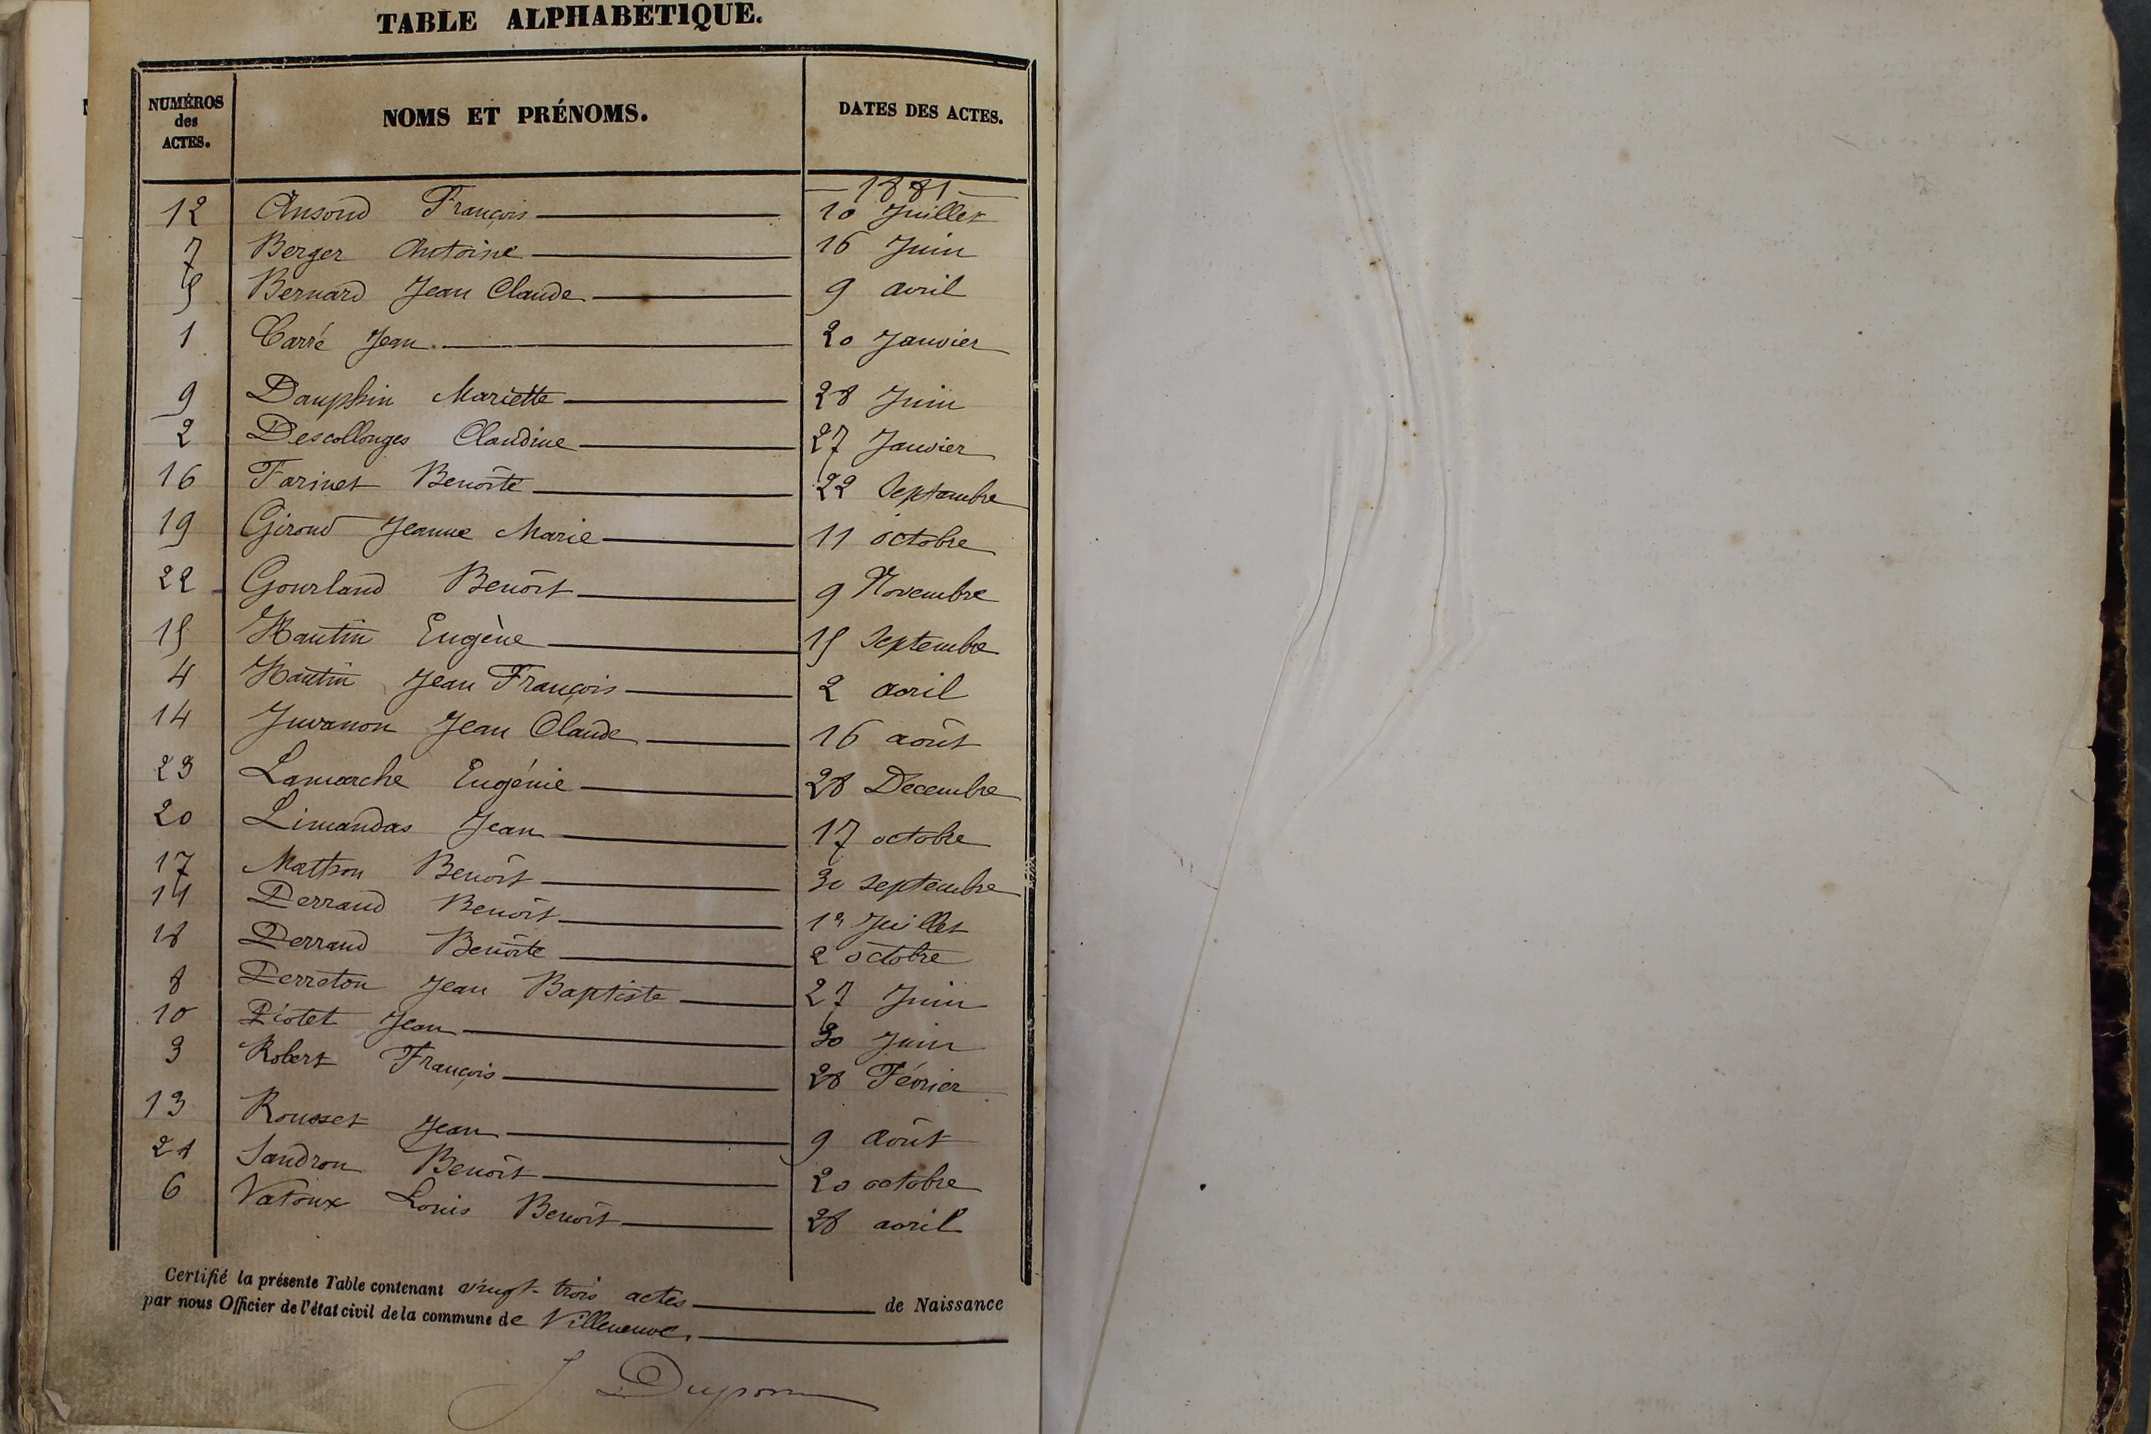 TABLE ALPHABÉTIQUE.
NUMÉROS des ACTES. NOMS ET PRÉNOMS. DATES DES ACTES.
1881
12 Ansond François 10 Juillet
7 Berger Antoine 16 Juin
5 Bernard Jean Claude 9 avril
1 Carré Jean 20 Janvier
9 Dauphin Mariette 28 Juin
2 Descollonges Claudine 27 Janvier
16 Farinet Benoîte 22 Septembre
19 Giroud Jeanne Marie 11 octobre
22 Gourland Benoît 9 Novembre
15 Hautin Eugène 15 Septembre
4 Hautin Jean François 2 avril
14 Juvanon Jean Claude 16 août
23 Lamarche Eugénie 28 Décembre
20 Limandas Jean 17 octobre
17 Mathon Benoît 30 septembre
11 Perraud Benoît Juillet
18 Perraud Benoîte 2 octobre
8 Perreton Jean Baptiste 27 Juin
10 Piotet Jean 30 Juin
3 Robert François 28 Février
13 Rousset Jean 9 août
21 Sandron Benoît 20 octobre
6 Vatoux Louis Benoît 28 avril
Certifié la présente Table contenant vingt-trois actes de Naissance
par nous Officier de l'état civil de la commune de Villeneuve.
J Dupon